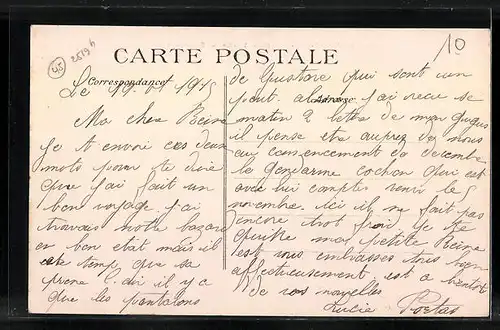 CARTE POSTALE
10
Correspondance
Adresse
Le 19. 1915
Ma cher Reine
Je t envoi ces deux
mots pour te dire
que j'ai fait un
bon voyage j'ai
trouvais notre bazar
en bon etat mais il
temp que sa
prene l'air il y a
que les pantalons
de Gustave qui sont un
peut abimer j'ai recu se
matin 2 lettre de mon gugus
il pense etre auprez de nous
au commencement de decembre
le gendarme cochon qui est
avec lui compte venir le
novembre. ici il ne fait pas
encore trot froid je te
quitte ma petite Reine
et vous embrasses tous bien
affectueusement et a bientot
de vos nouvelles
Lucie